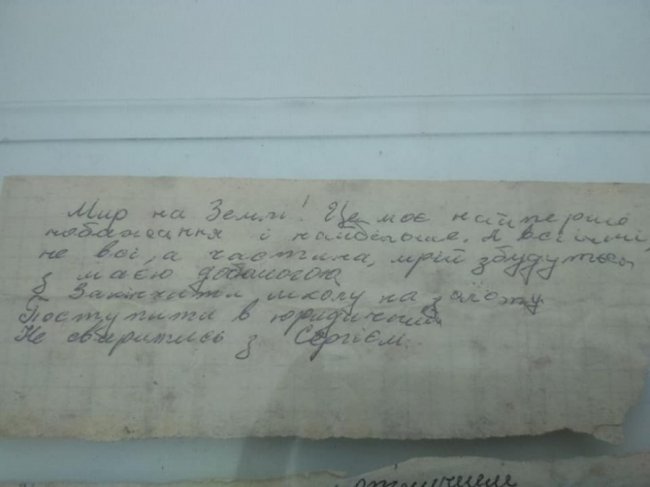 Мир на Землі! Це моє найперше
побажання і найбільше. А всі інші,
не всі, а частина, мрій збудуться
з маєю допомогою
Закінчити школу на золоту
Поступити в юридичний
Не сваритись з Сергієм.
отличием